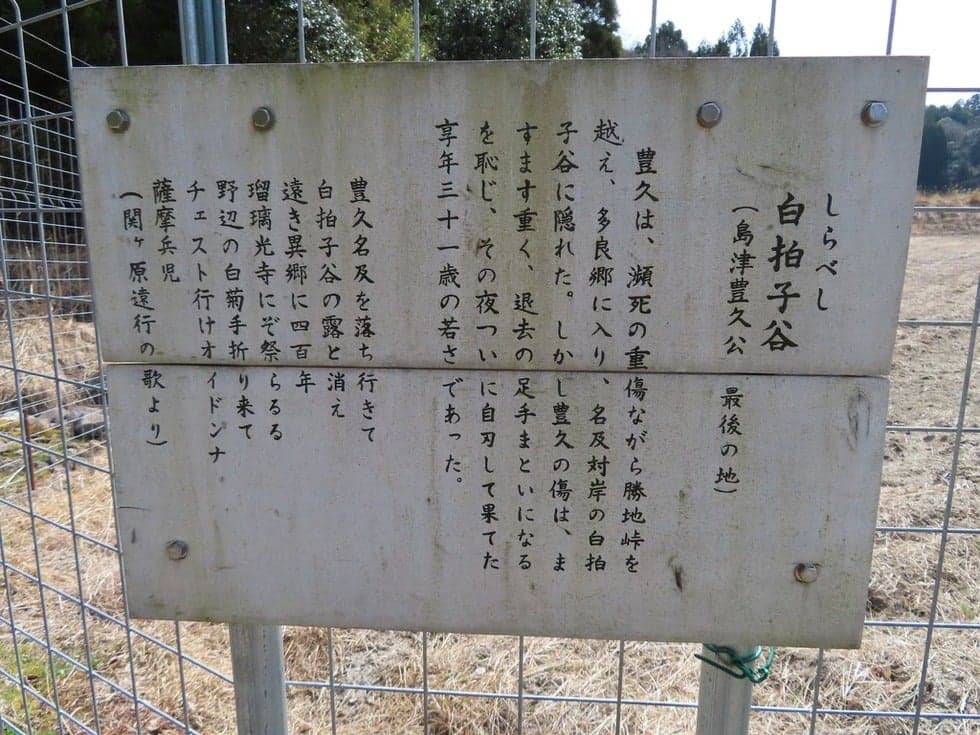 しらべし
白拍子谷
(島津豊久公 最後の地)
豊久は、瀕死の重傷ながら勝地峠を
越え、多良郷に入り、名及対岸の白拍
子谷に隠れた。しかし豊久の傷は、ま
すます重く、退去の足手まといになる
を恥じ、その夜ついに自刃して果てた
享年三十一歳の若さであった。
豊久名及を落ち行きて
白拍子谷の露と消え
遠き異郷に四百年
瑠璃光寺にぞ祭らるる
野辺の白菊手折り来て
チェスト行けオイドンナ
薩摩兵児
(関ヶ原遠行の歌より)